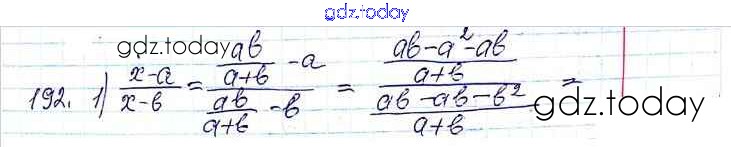 gdz.today
gdz.today
192. 1) \frac{x-a}{x-b} = \frac{\frac{ab}{a+b} - a}{\frac{ab}{a+b} - b} = \frac{\frac{ab-a^2-ab}{a+b}}{\frac{ab-ab-b^2}{a+b}} =
gdz.today